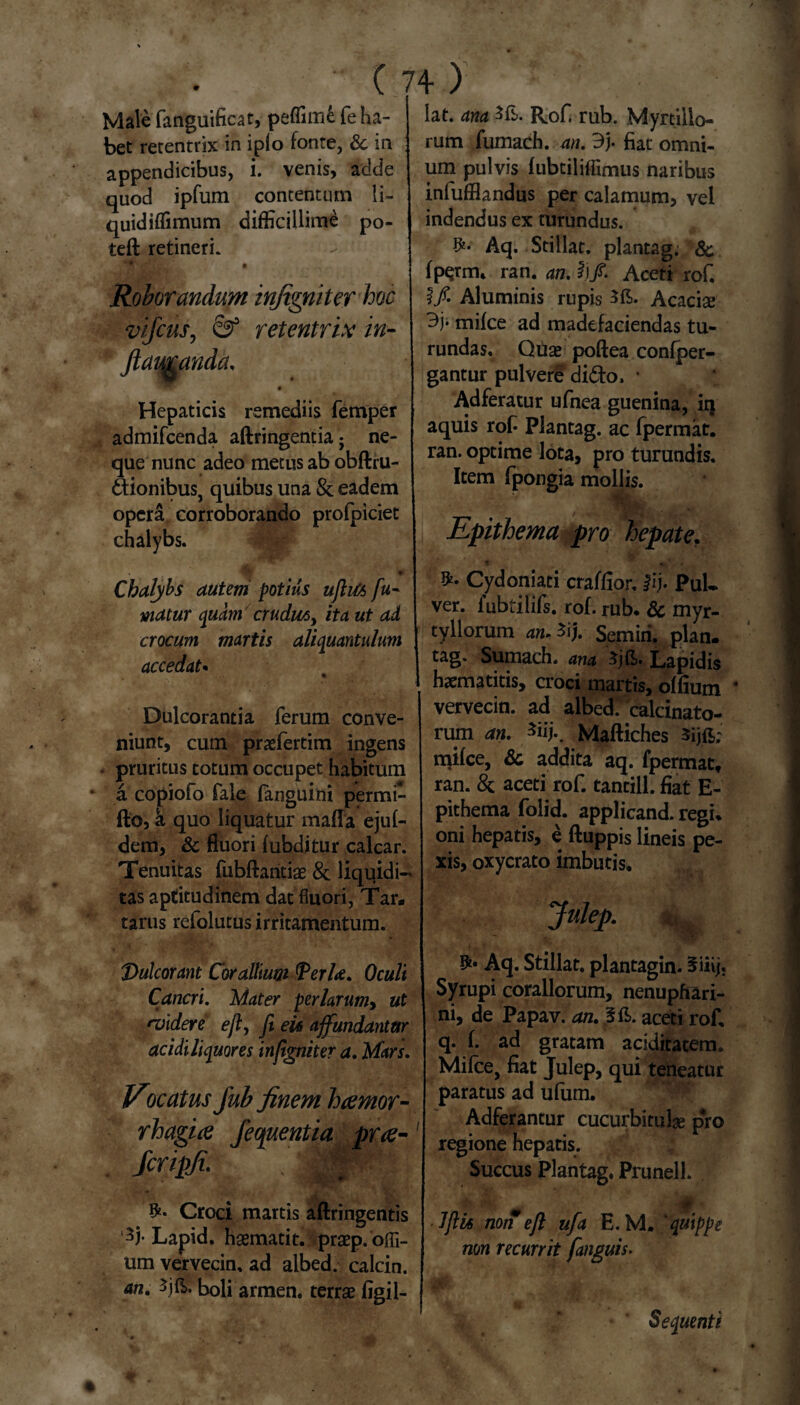 ( 74 )
Male ſanguificat, peſſimè ſe ha-
bet retentrix in ipſo fonte, & in
appendicibus, i. venis, adde
quod ipſum contentum li-
quidiſſimum difficillimè po-
teſt retineri.
Roborandum inſigniter hoc
viſcus, & retentrix in-
ſtauranda.
Hepaticis remediis ſemper
admiſcenda aſtringentia; ne-
que nunc adeo metus ab obſtru-
ctionibus, quibus una & eadem
operâ corroborando proſpiciet
chalybs.
Chalybs autem potiùs uſtus ſu-
matur quàm crudus, ita ut ad
crocum martis aliquantulum
accedat.
Dulcorantia ferum conve-
niunt, cum præſertim ingens
pruritus totum occupet habitum
à copioſo ſale ſanguini permi-
ſto, à quo liquatur maſſa ejuſ-
dem, & fluori ſubditur calcar.
Tenuitas ſubſtantiæ & liquidi-
tas aptitudinem dat fluori, Tar-
tarus reſolutus irritamentum.
Dulcorant Corallium Perlæ. Oculi
Cancri. Mater perlarum, ut
videre eſt, ſi eis affundantur
acidi liquores inſigniter a. Mars.
Vocatus ſub finem hæmor-
rhagiæ ſequentia præ-
ſcripſi.
℞. Croci martis aſtringentis
ʒj. Lapid. hæmatit. præp. oſſi-
um vervecin. ad albed. calcin.
an. ʒjß. boli armen. terræ ſigil-
lat. ana ʒß. Roſ. rub. Myrtillo-
rum ſumach. an. ℈j. fiat omni-
um pulvis ſubtiliſſimus naribus
inſufflandus per calamum, vel
indendus ex turundus.
℞. Aq. Stillat. plantag. &
ſperm. ran. an. ℥iſſ. Aceti roſ.
℥ſſ. Aluminis rupis ʒß. Acaciæ
℈j. miſce ad madefaciendas tu-
rundas. Quæ poſtea conſper-
gantur pulvere dicto.
Adferatur uſnea guenina, in
aquis roſ. Plantag. ac ſpermat.
ran. optime lota, pro turundis.
Item ſpongia mollis.
Epithema pro hepate.
℞. Cydoniati craſſior. ℥ij. Pul-
ver. ſubtiliſs. roſ. rub. & myr-
tyllorum an. ʒij. Semin. plan-
tag. Sumach. ana ʒjß. Lapidis
hæmatitis, croci martis, oſſium
vervecin. ad albed. calcinato-
rum an. ʒiij. Maſtiches ʒijß;
miſce, & addita aq. ſpermat,
ran. & aceti roſ. tantill. fiat E-
pithema ſolid. applicand. regi-
oni hepatis, è ſtuppis lineis pe-
xis, oxycrato imbutis.
Julep.
℞. Aq. Stillat. plantagin. ℥iiij.
Syrupi corallorum, nenuphari-
ni, de Papav. an. ℥ß. aceti roſ.
q. ſ. ad gratam aciditatem.
Miſce, fiat Julep, qui teneatur
paratus ad uſum.
Adferantur cucurbitulæ pro
regione hepatis.
Succus Plantag. Prunell.
Iſtis non eſt uſa E. M. quippe
non recurrit ſanguis.
Sequenti